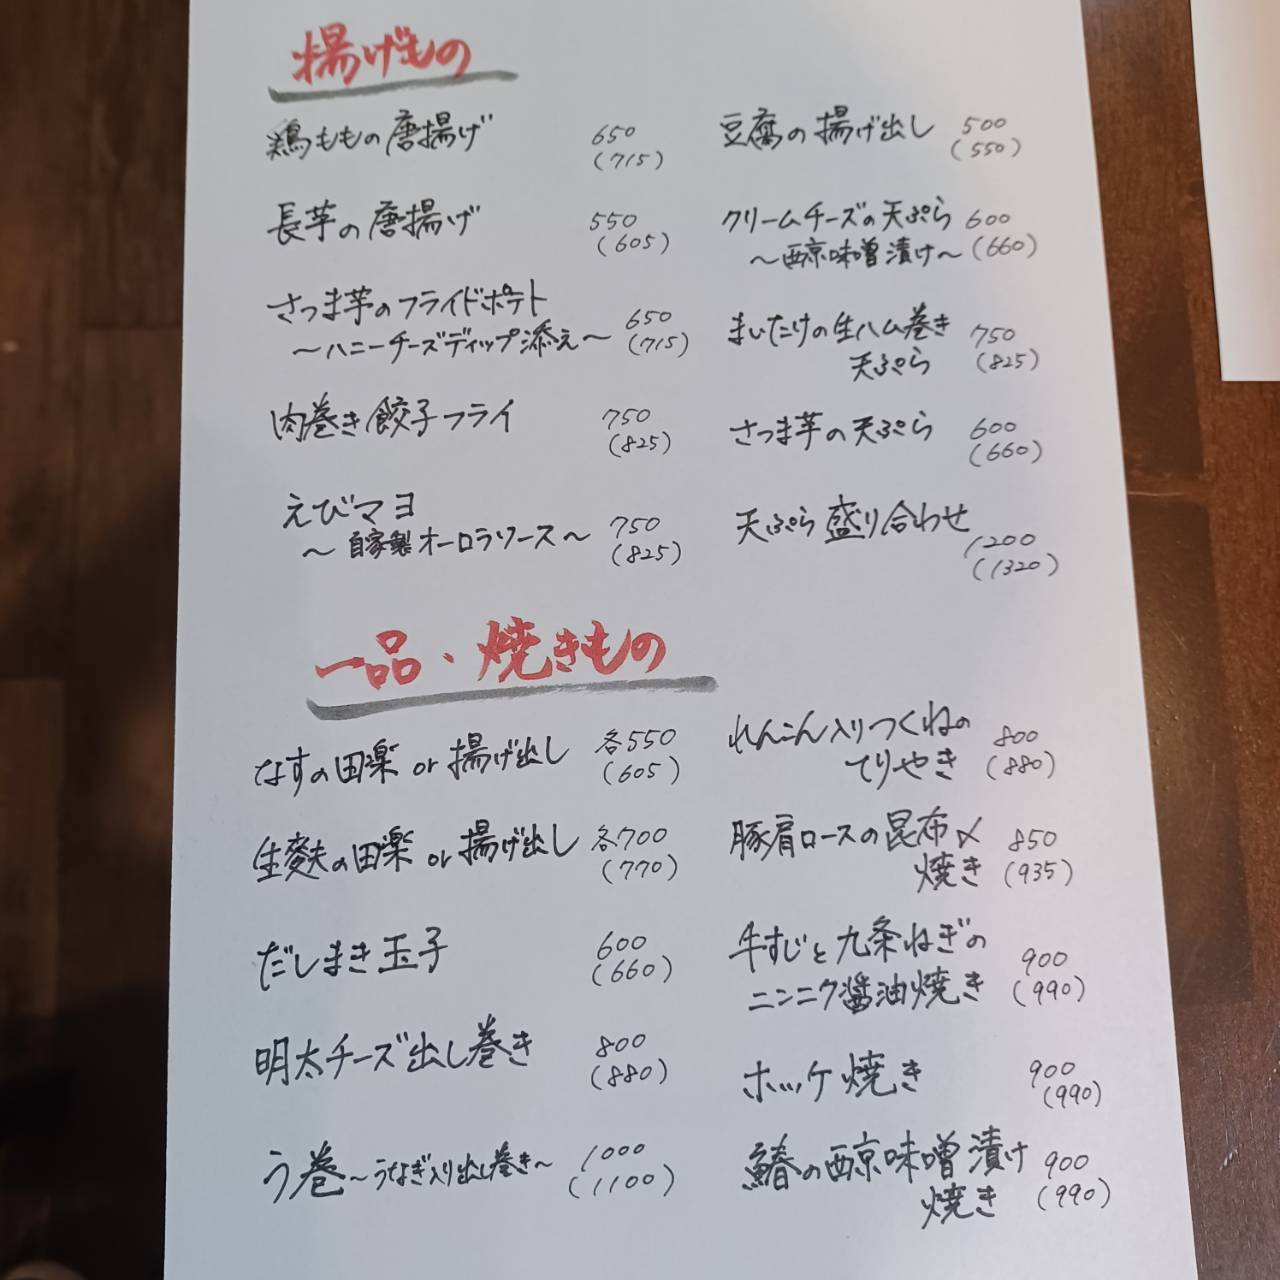 揚げもの
鶏ももの唐揚げ 650
(715)
長芋の唐揚げ 550
(605)
さつま芋のフライドポテト
〜ハニーチーズディップ添え〜 650
(715)
肉巻き餃子フライ 750
(825)
えびマヨ
〜自家製オーロラソース〜 750
(825)
豆腐の揚げ出し 500
(550)
クリームチーズの天ぷら 600
〜西京味噌漬け〜 (660)
まいたけの生ハム巻き 750
天ぷら (825)
さつま芋の天ぷら 600
(660)
天ぷら盛り合わせ
1200
(1320)
一品、焼きもの
なすの田楽 or 揚げ出し 各550
(605)
生麩の田楽 or 揚げ出し 各700
(770)
だしまき玉子 600
(660)
明太チーズ出し巻き 800
(880)
う巻〜うなぎ入り出し巻き〜 1000
(1100)
れんこん入りつくねの 800
てりやき (880)
豚肩ロースの昆布〆 850
焼き (935)
牛すじと九条ねぎの 900
ニンニク醤油焼き (990)
ホッケ焼き 900
(990)
鰆の西京味噌漬け 900
焼き (990)